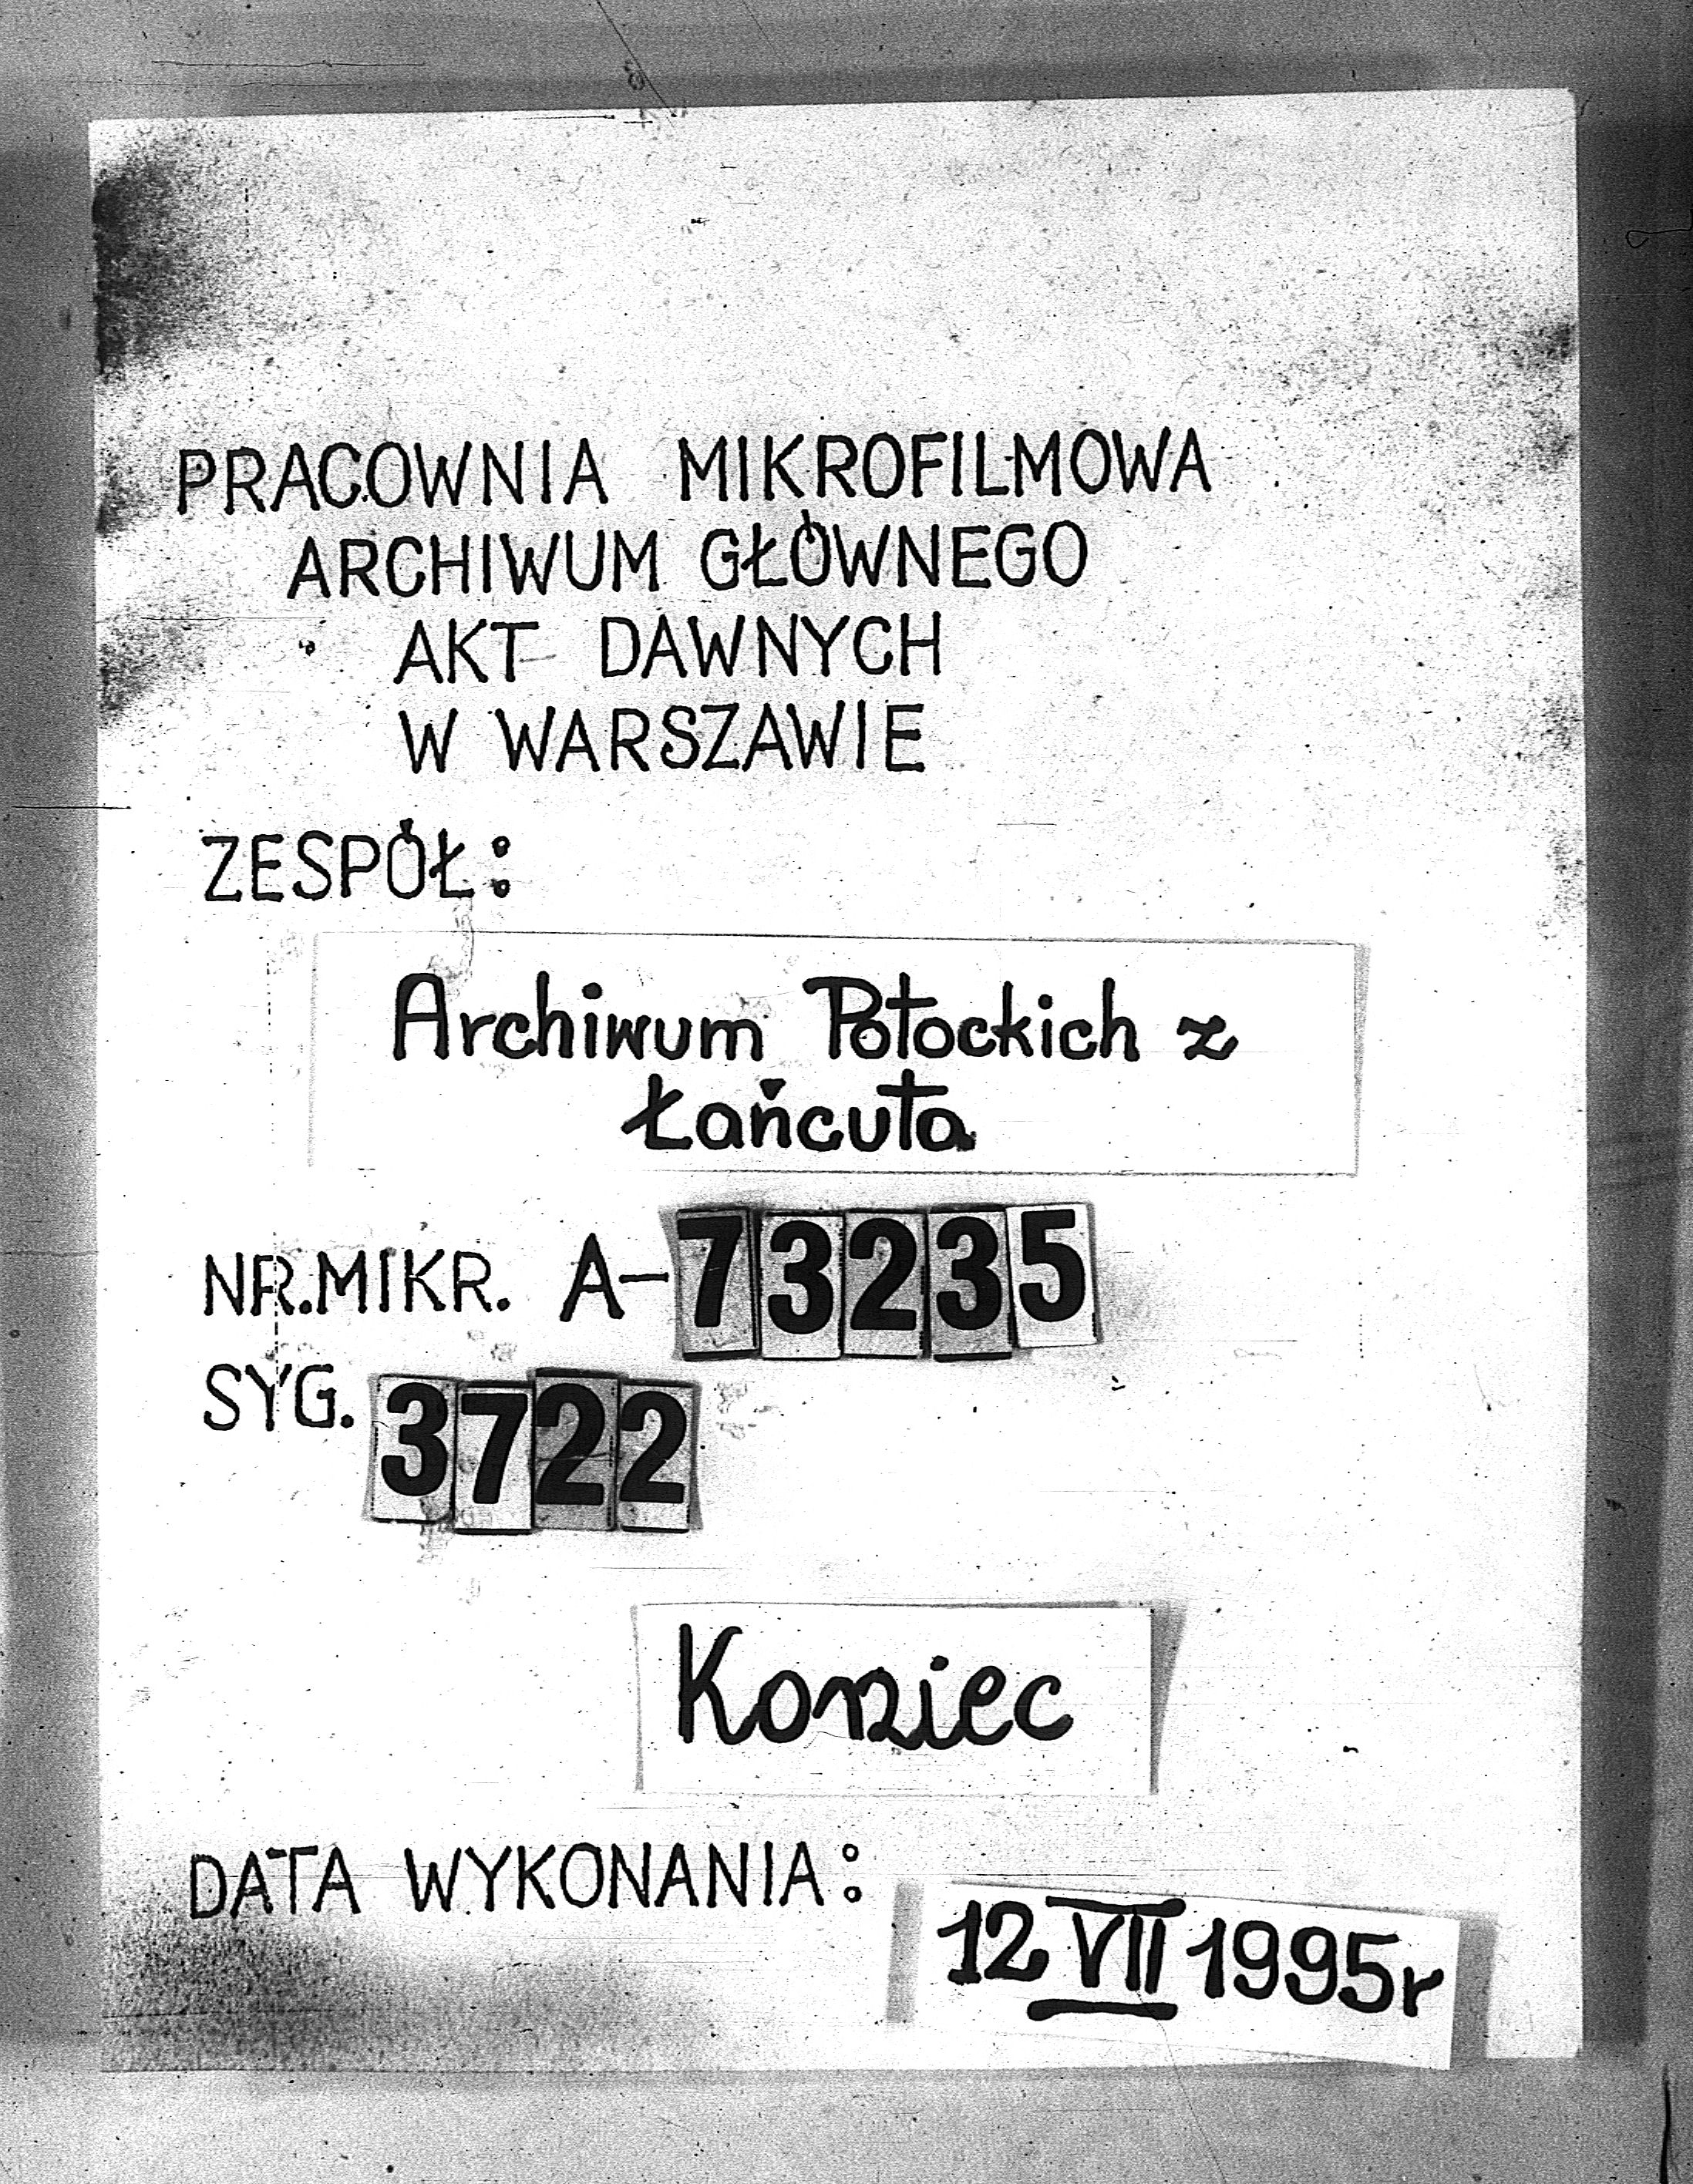 PRACOWNIA MIKROFILMOWA
ARCHIWUM GŁÓWNEGO
AKT DAWNYCH
W WARSZAWIE
ZESPÓŁ:
Archiwum Potockich z
Łańcuta
NR.MIKR. A-73235
SYG. 3722
Koniec
DATA WYKONANIA:
12 VII 1995r